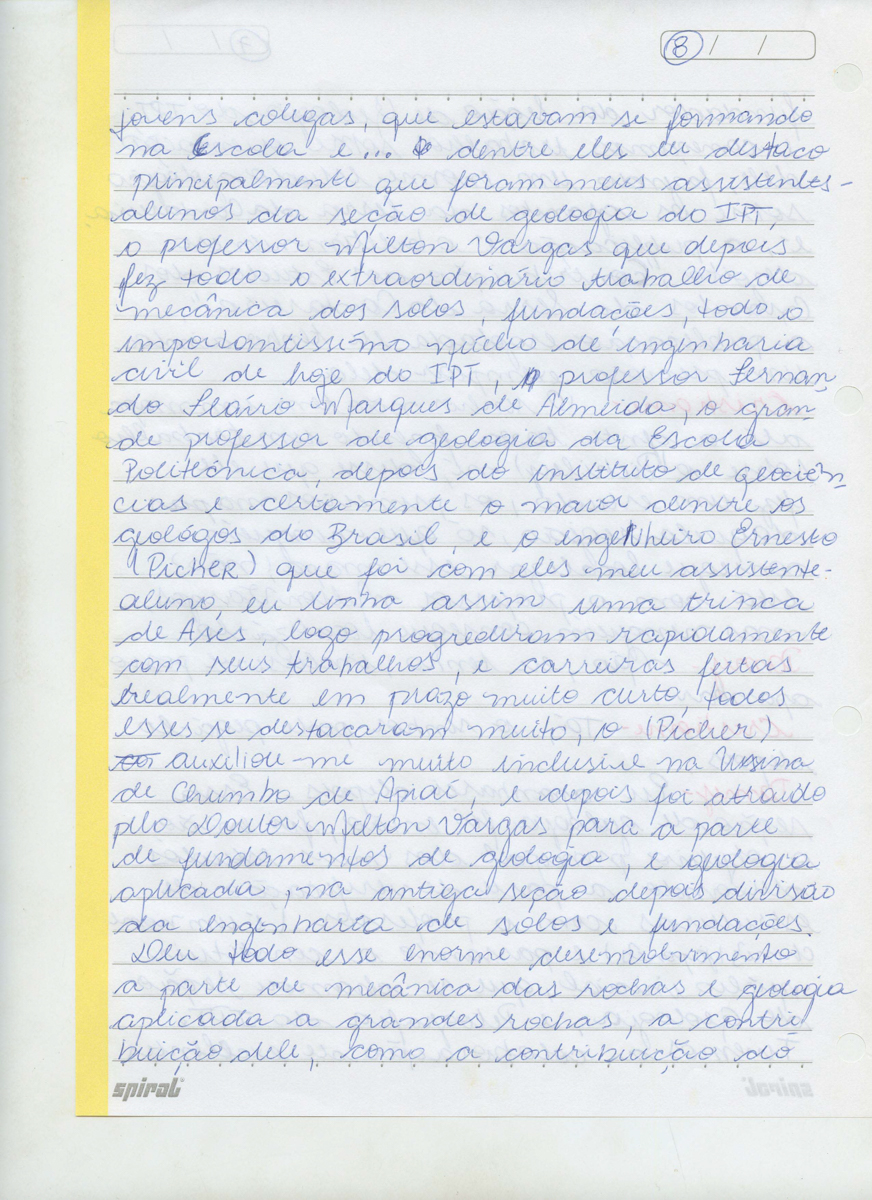 8 / /
jovens colegas, que estavam se formando
na Escola e... dentre eles eu destaco
principalmente que foram meus assistentes-
alunos da seção de geologia do IPT,
o professor Milton Vargas que depois
fez todo o extraordinário trabalho de
mecânica dos solos, fundações, todo o
importantissímo núcleo de engenharia
civil de hoje do IPT, professor Fernan-
do Flávio Marques de Almeida, o gran-
de professor de geologia da Escola
Politécnica, depois do instituto de geociên-
cias e certamente o maior dentre os
geológos do Brasil, e o engenheiro Ernesto
(Picher) que foi com eles meu assistente-
aluno, eu tinha assim uma trinca
de Ases, logo progrediram rapidamente
com seus trabalhos, e carreiras feitas
realmente em prazo muito curto, todos
esses se destacaram muito, o (Picher)
auxiliou-me muito inclusive na Usina
de Chumbo de Apiaí, e depois foi atraído
pelo Doutor Milton Vargas para a parte
de fundamentos de geologia, e geologia
aplicada, na antiga seção depois divisão
da engenharia de solos e fundações.
Deu todo esse enorme desenvolvimento
a parte de mecânica das rochas e geologia
aplicada a grandes rochas, a contri
buição dele, como a contribuição do
spiral